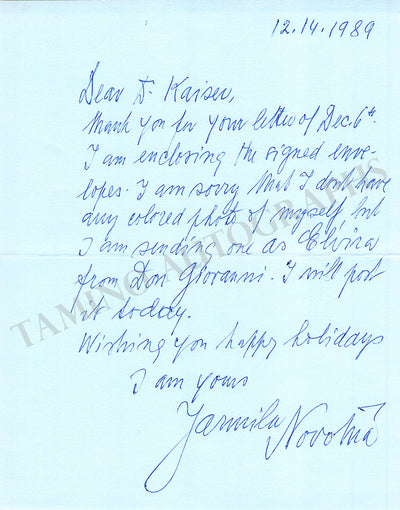 12.14.1989
Dear Dr Kaiser,
Thank you for your letter of Dec. 6th.
I am enclosing the signed enve-
lopes. I am sorry that I dont have
any colored photo of myself but
I am sending one as Elvira
from Don Giovanni. I will post
it today.
Wishing you happy holidays
I am yours
Jarmila Novotná
TAMINO AUTOGRAPHS